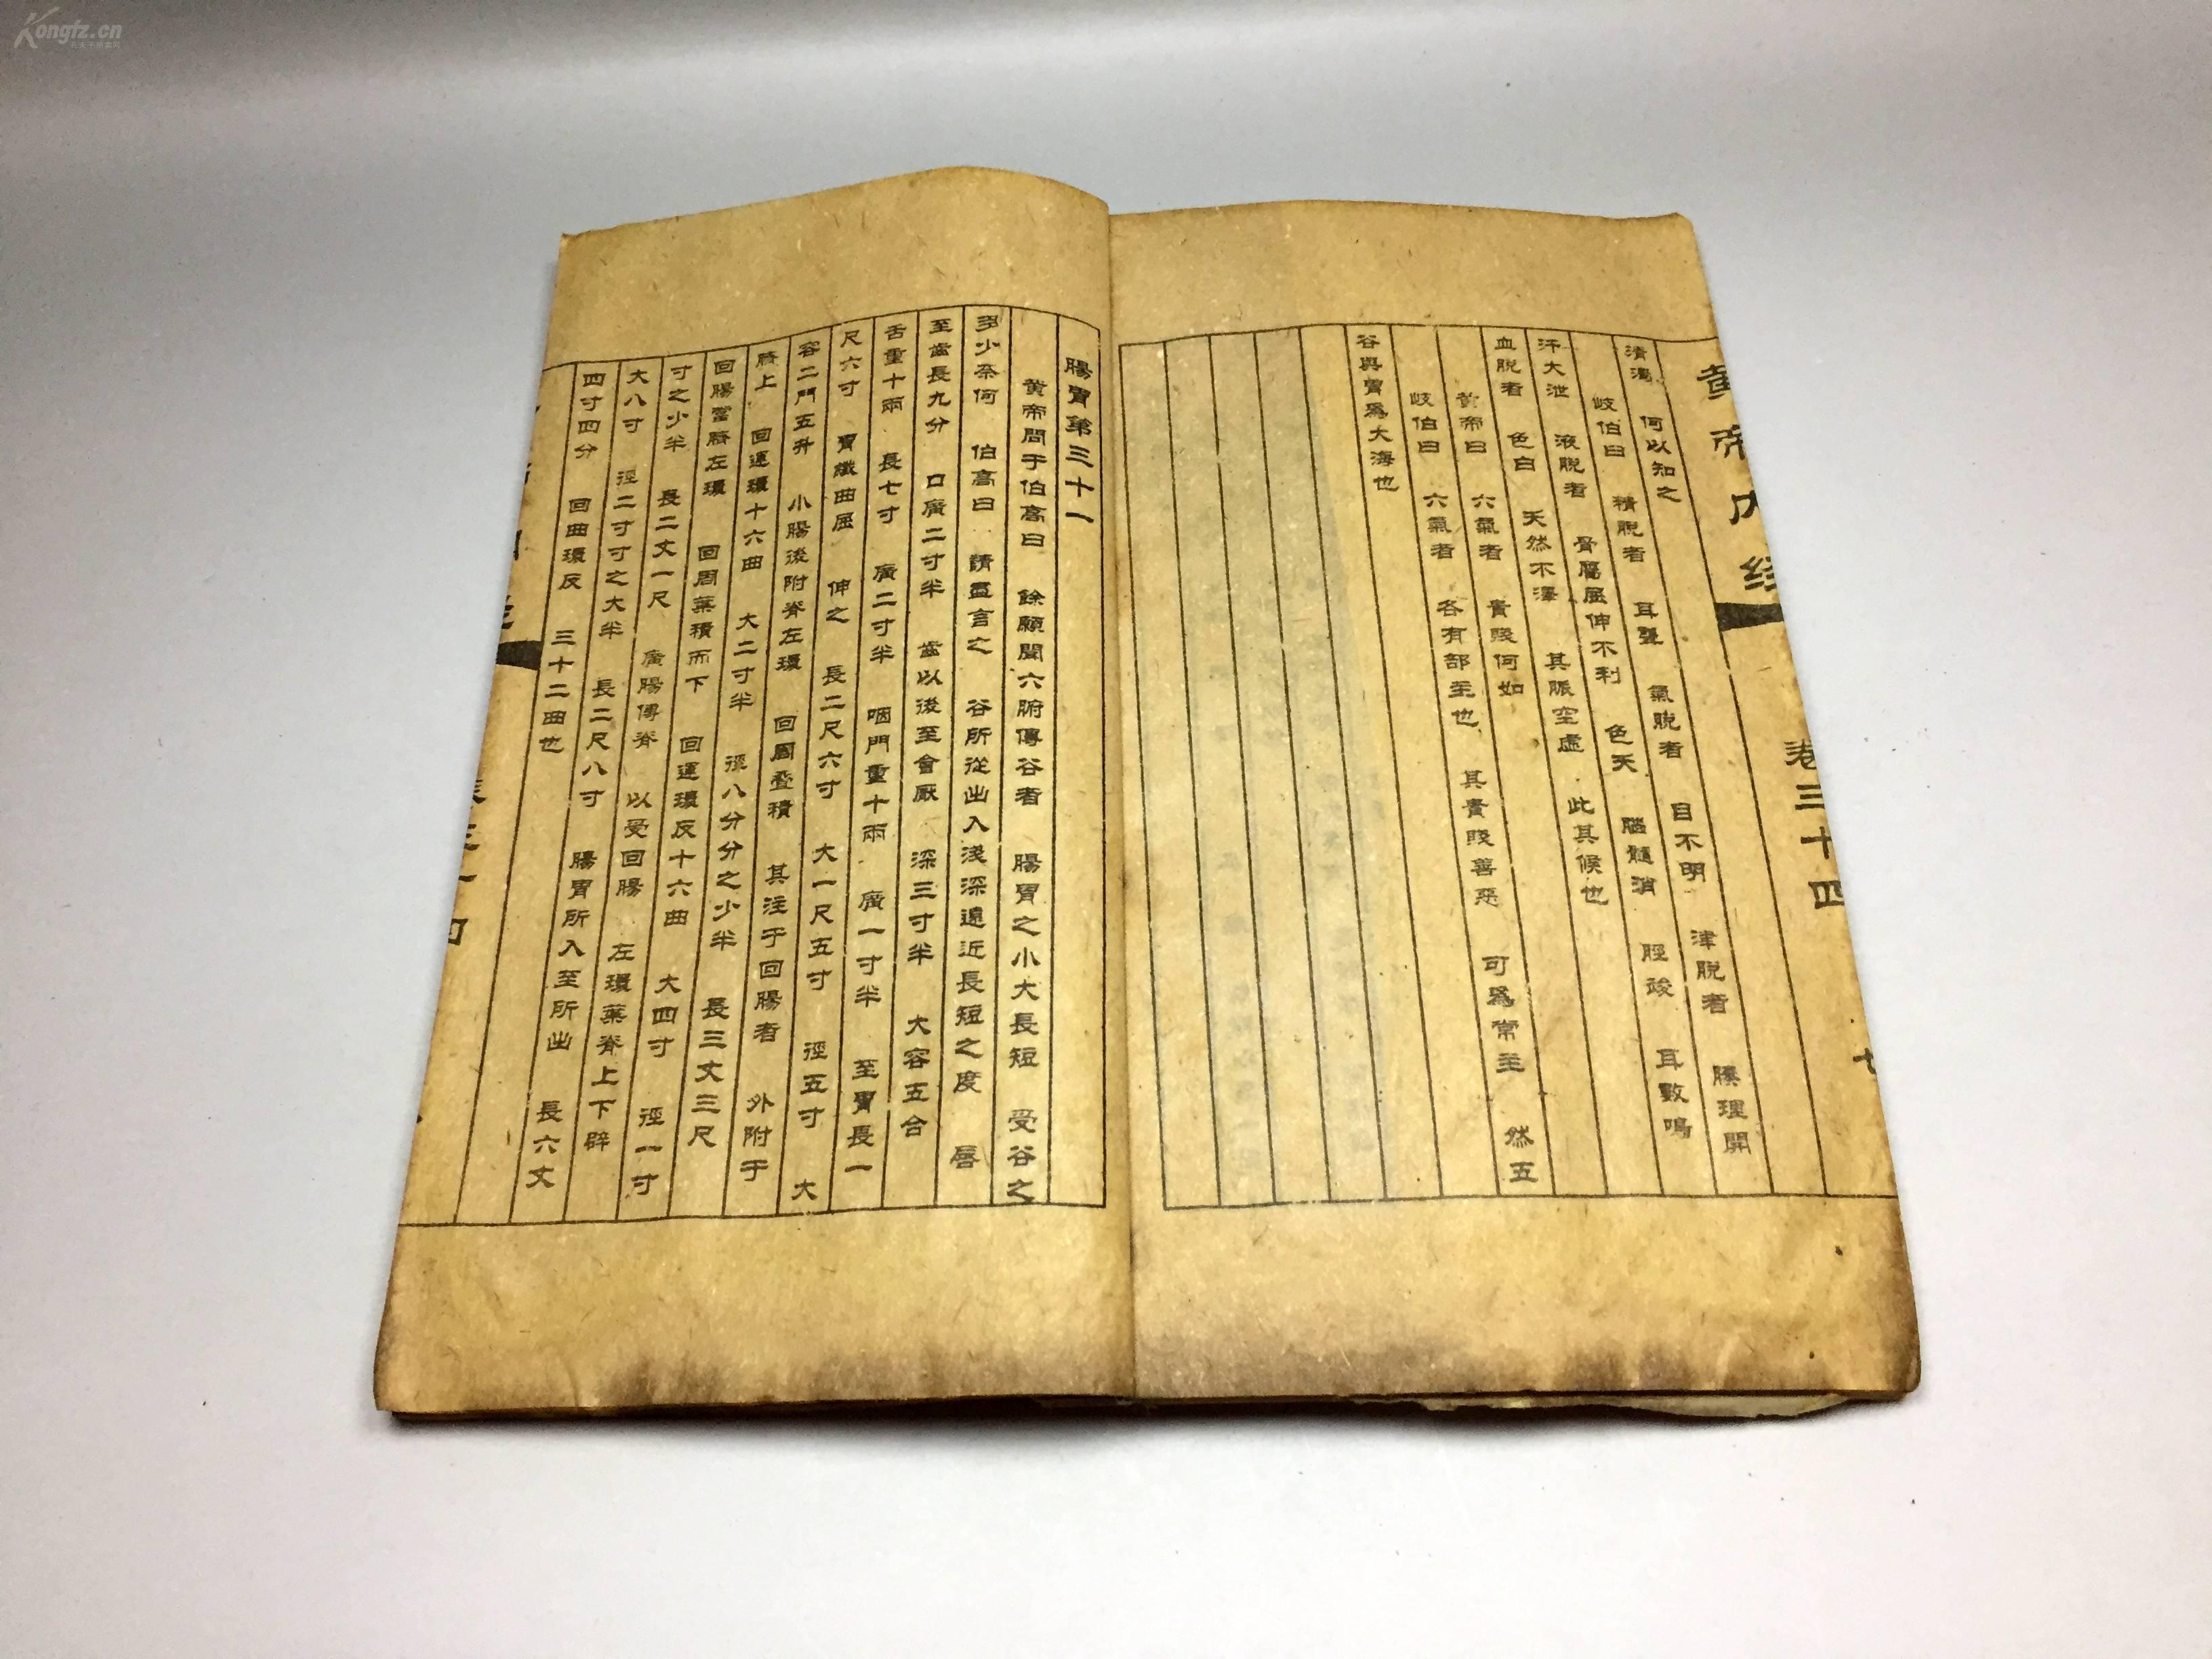 Kongfz.cn
黄帝内经 卷三十四
清濁 何以知之
岐伯曰 精脱者 耳聾 氣脱者 目不明 津脱者 腠理開
汗大泄 液脱者 骨屬屈伸不利 色夭 腦髓消 脛痠 耳數鳴
血脱者 色白 天然不澤 其脈空虛 此其候也
黄帝曰 六氣者 貴賤何如
岐伯曰 六氣者 各有部主也 其貴賤善惡 可爲常主 然五
谷與胃爲大海也
腸胃第三十一
黄帝問于伯高曰 餘願聞六腑傳谷者 腸胃之小大長短 受谷之
多少奈何 伯高曰 請盡言之 谷所從出入淺深遠近長短之度 唇
至齒長九分 口廣二寸半 齒以後至會厭 深三寸半 大容五合
舌重十兩 長七寸 廣二寸半 咽門重十兩 廣一寸半 至胃長一
尺六寸 胃纖曲屈 伸之 長二尺六寸 大一尺五寸 徑五寸 大
容二鬥五升 小腸後附脊左環 回周疊積 其注于回腸者 外附于
臍上 回運環十六曲 大二寸半 徑八分分之少半 長三丈三尺
回腸當臍左環 回周葉積而下 回運環反十六曲 大四寸 徑一寸
寸之少半 長二丈一尺 廣腸傅脊 以受回腸 左環葉脊上下辟
大八寸 徑二寸寸之大半 長二尺八寸 腸胃所入至所出 長六丈
四寸四分 回曲環反 三十二曲也